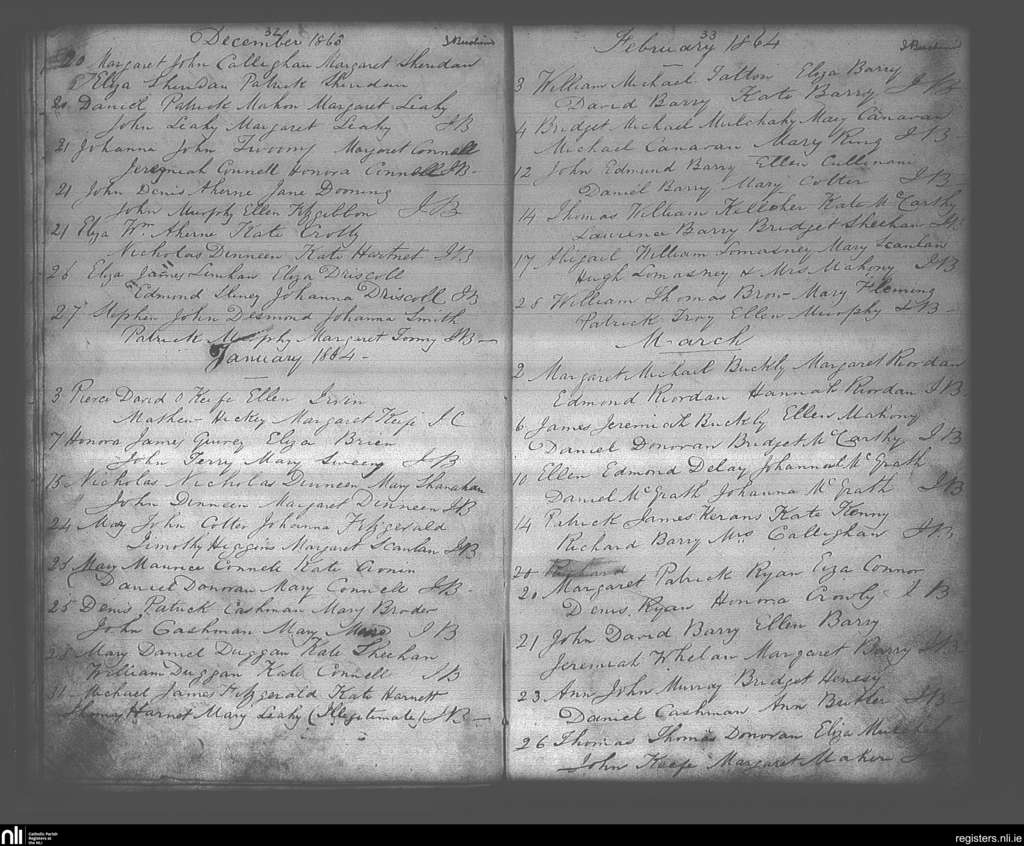 32
December 1863
20 Margaret John Callaghan Margaret Sheridan
Eliza Sheridan Patrick Sheridan
20 Daniel Patrick Mahon Margaret Leahy
John Leahy Margaret Leahy JB
21 Johanna John Twoomy Margaret Connell
Jeremiah Connell Honora Connell JB
21 John Denis Aherne Jane Dooning
John Murphy Ellen Fitzgibbon JB
21 Eliza Wm Aherne Kate Crotty
Nicholas Dinneen Kate Hartnet JB
26 Eliza James Linehan Eliza Driscoll
Edmond Sliney Johanna Driscoll JB
27 Stephen John Desmond Johanna Smith
Patrick Murphy Margaret Toomy JB
January 1864
3 Pierce David O Keife Ellen Irvin
Mathew Hickey Margaret Keife JC
7 Honora James Eliza Brien
John Terry Mary Sweeny JB
15 Nicholas Nicholas Dinneen Mary Shanahan
John Dinneen Margaret Dinneen JB
24 May John Cotter Johanna Fitzgerald
Timothy Higgins Margaret Scanlan JB
25 Mary Maurice Connell Kate Cronin
Daniel Donovan Mary Connell JB
25 Denis Patrick Cashman Mary Broder
John Cashman Mary JB
28 Mary Daniel Duggan Kate Sheehan
William Duggan Kate Connell JB
31 Michael James Fitzgerald Kate Harnett
Thomas Harnet Mary Leahy (Illegitimate) JB
33
February 1864
3 William Michael Tatton Eliza Barry
David Barry Kate Barry JB
4 Bridget Michael Mulchahy Mary Canavan
Michael Canavan Mary Ring JB
12 John Edmund Barry Ellen Cullinane
Daniel Barry Mary Cotter JB
14 Thomas William Kelleher Kate McCarthy
Laurence Barry Bridget Sheehan JB
17 Abigail William Lomasney Mary Scanlan
Hugh Lomasney & Mrs Mahony JB
28 William Thomas Brow Mary Fleming
Patrick Troy Ellen Murphy JB
March
2 Margaret Michael Buckly Margaret Riordan
Edmond Riordan Hannah Riordan JB
6 James Jeremiah Buckly Ellen Mahony
Daniel Donovan Bridget McCarthy JB
10 Ellen Edmond Delay Johannah McGrath
Daniel McGrath Johanna McGrath JB
14 Patrick James Kerans Kate Kenny
Richard Barry Mrs Callaghan JB
20
20 Margaret Patrick Ryan Eliza Connor
Denis Ryan Honora Crowly JB
21 John David Barry Ellen Barry
Jeremiah Whelan Margaret Barry JB
23 Ann John Murray Bridget Henesy
Daniel Cashman Ann Butler JB
26 Thomas Thomas Donovan Eliza
John Keefe Margaret Makere
nli Catholic Parish
Registers at
the NLI
registers.nli.ie